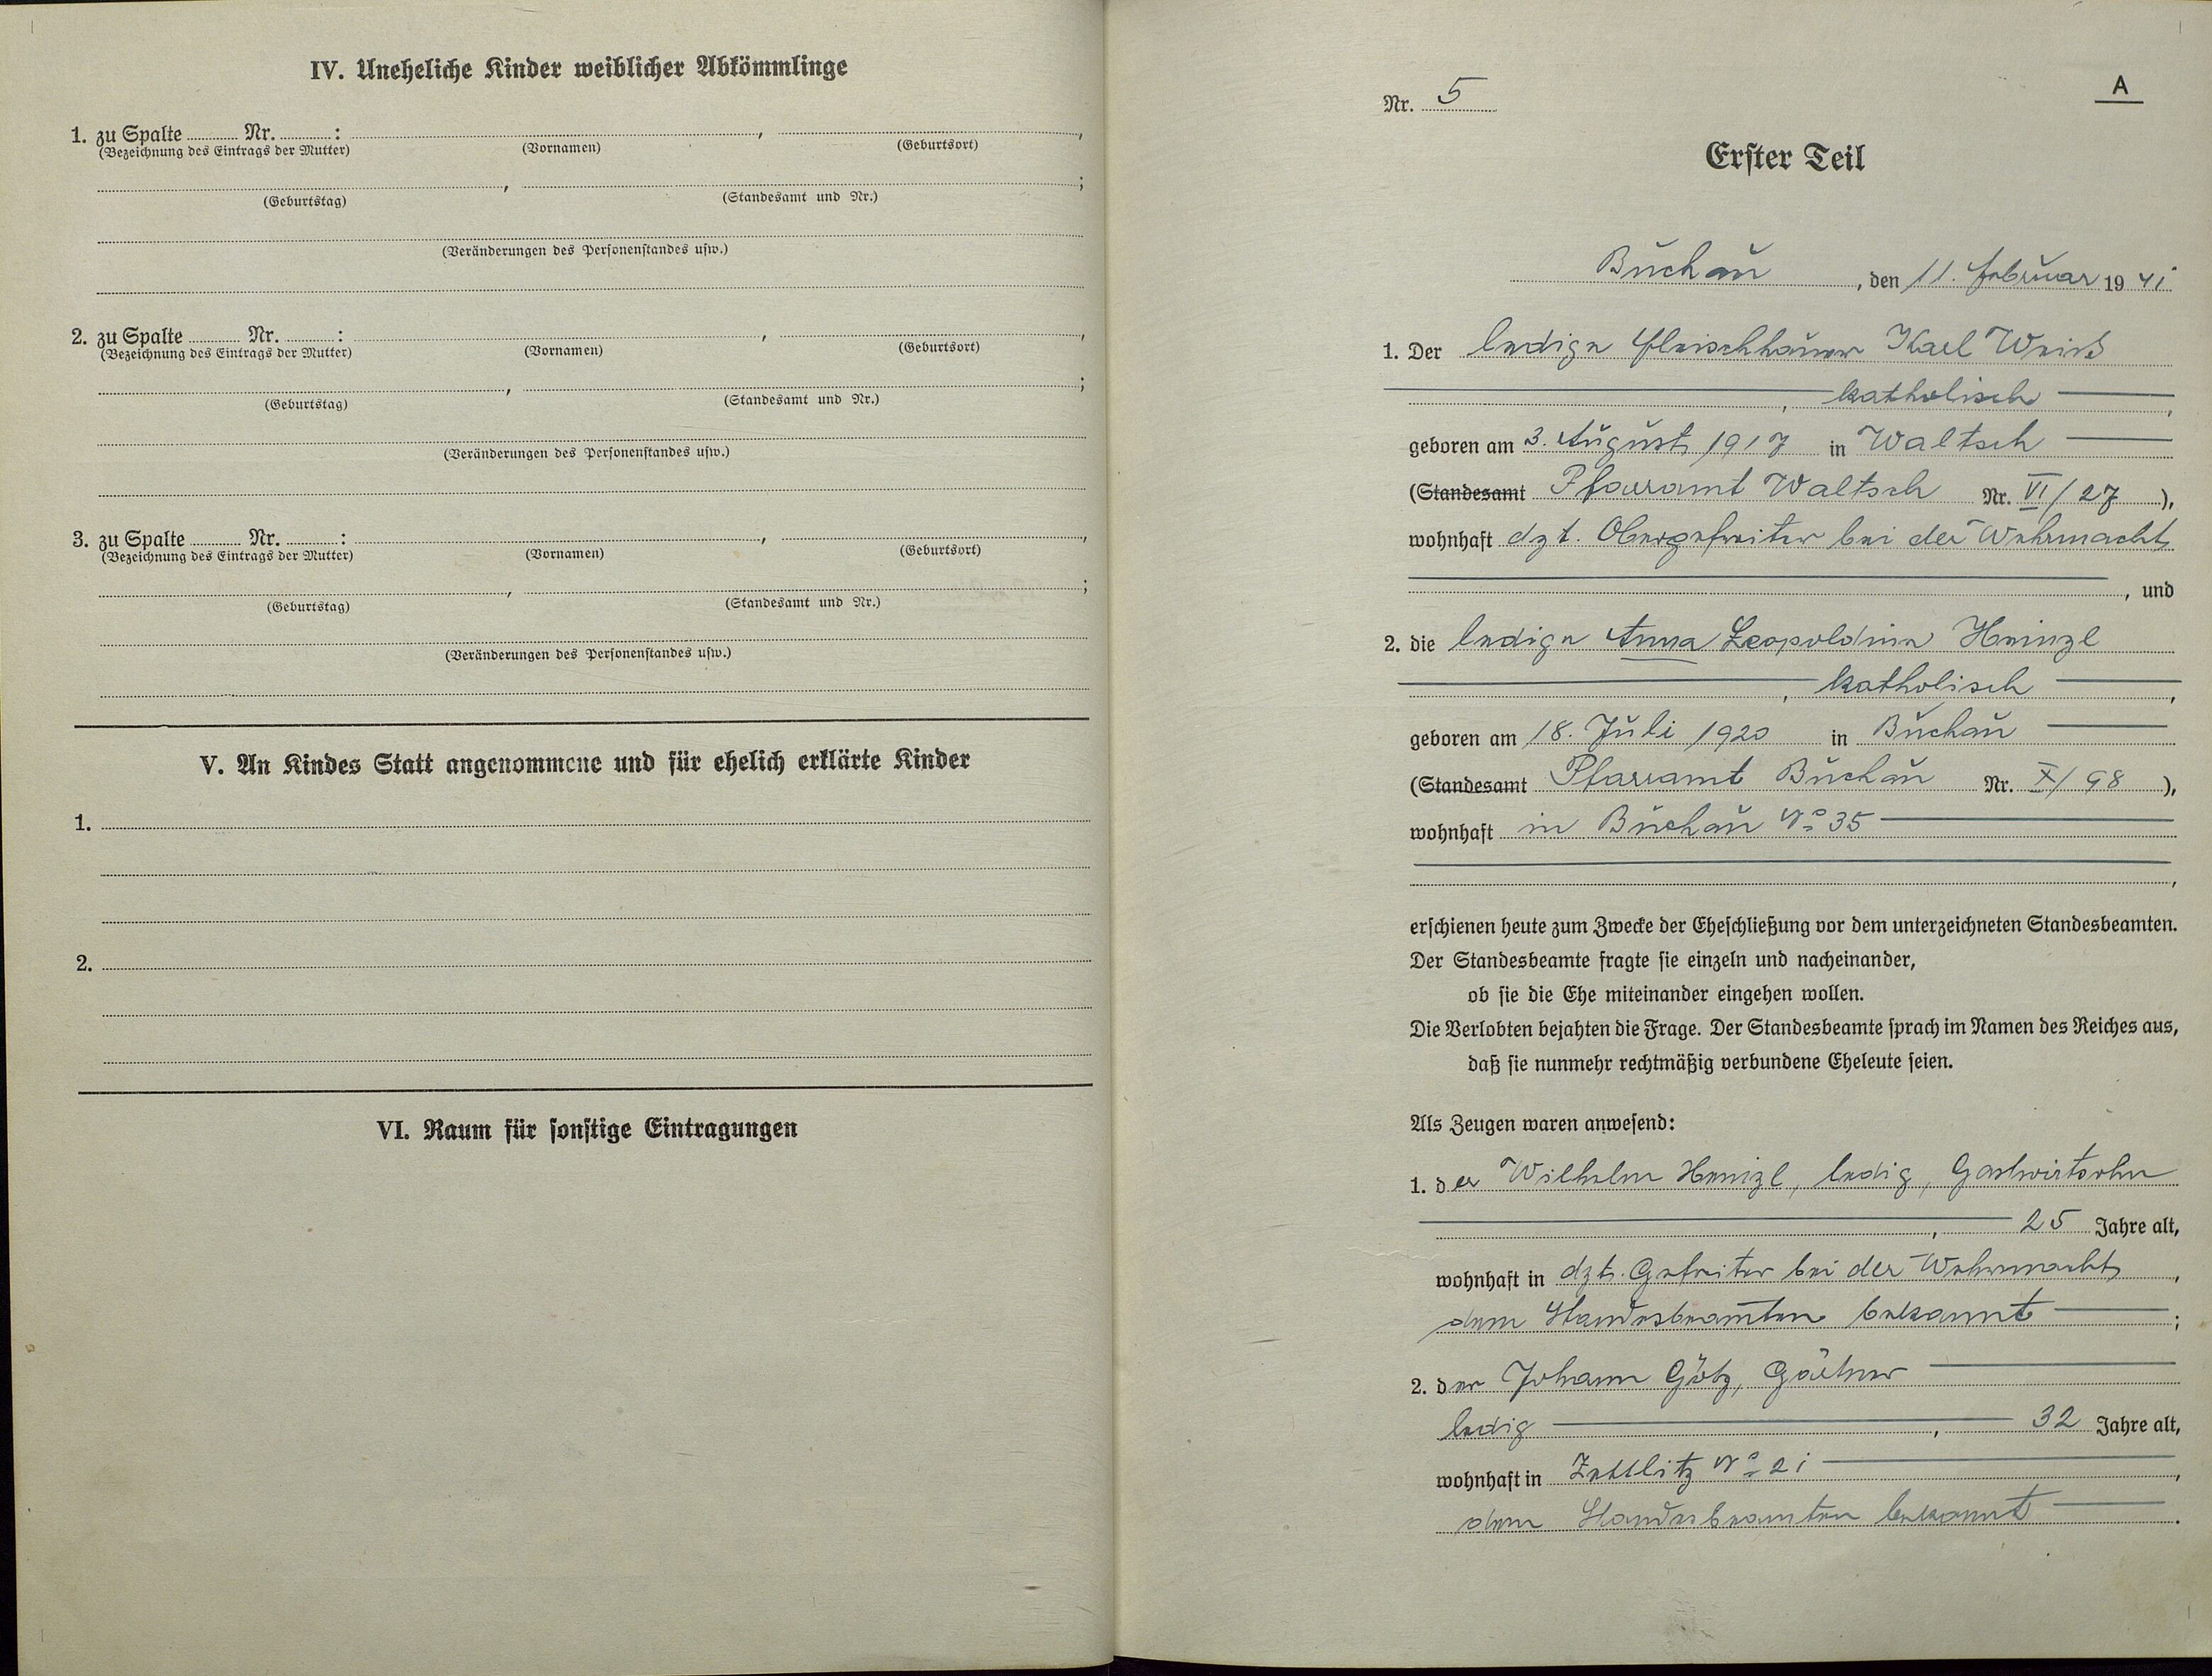 IV. Uneheliche Kinder weiblicher Abkömmlinge
1. zu Spalte Nr. : , ,
(Bezeichnung des Eintrags der Mutter) (Vornamen) (Geburtsort)
, ;
(Geburtstag) (Standesamt und Nr.)
(Veränderungen des Personenstandes usw.)
2. zu Spalte Nr. : , ,
(Bezeichnung des Eintrags der Mutter) (Vornamen) (Geburtsort)
, ;
(Geburtstag) (Standesamt und Nr.)
(Veränderungen des Personenstandes usw.)
3. zu Spalte Nr. : , ,
(Bezeichnung des Eintrags der Mutter) (Vornamen) (Geburtsort)
, ;
(Geburtstag) (Standesamt und Nr.)
(Veränderungen des Personenstandes usw.)
V. An Kindes Statt angenommene und für ehelich erklärte Kinder
1.
2.
VI. Raum für sonstige Eintragungen
A
Nr. 5
Erster Teil
Buchau, den 11. Februar 1941
1. Der ledige Fleischhauer Karl Weis
, katholisch ,
geboren am 3. August 1917 in Waltsch
(Standesamt Pfarramt Waltsch Nr. VI/27),
wohnhaft dzt. Obergefreiter bei der Wehrmacht
, und
2. die ledige Anna Leopoldine Heinzl
, katholisch ,
geboren am 18. Juli 1920 in Buchau
(Standesamt Pfarramt Buchau Nr. X/98),
wohnhaft in Buchau No 35
,
erschienen heute zum Zwecke der Eheschließung vor dem unterzeichneten Standesbeamten.
Der Standesbeamte fragte sie einzeln und nacheinander,
ob sie die Ehe miteinander eingehen wollen.
Die Verlobten bejahten die Frage. Der Standesbeamte sprach im Namen des Reiches aus,
daß sie nunmehr rechtmäßig verbundene Eheleute seien.
Als Zeugen waren anwesend:
1. der Wilhelm Heinzl, ledig, Gastwirtsohn
, 25 Jahre alt,
wohnhaft in dzt. Gefreiter bei der Wehrmacht,
dem Standesbeamten bekannt ;
2. der Johann Götz, Gärtner
ledig , 32 Jahre alt,
wohnhaft in Zettlitz No 21 ,
dem Standesbeamten bekannt .